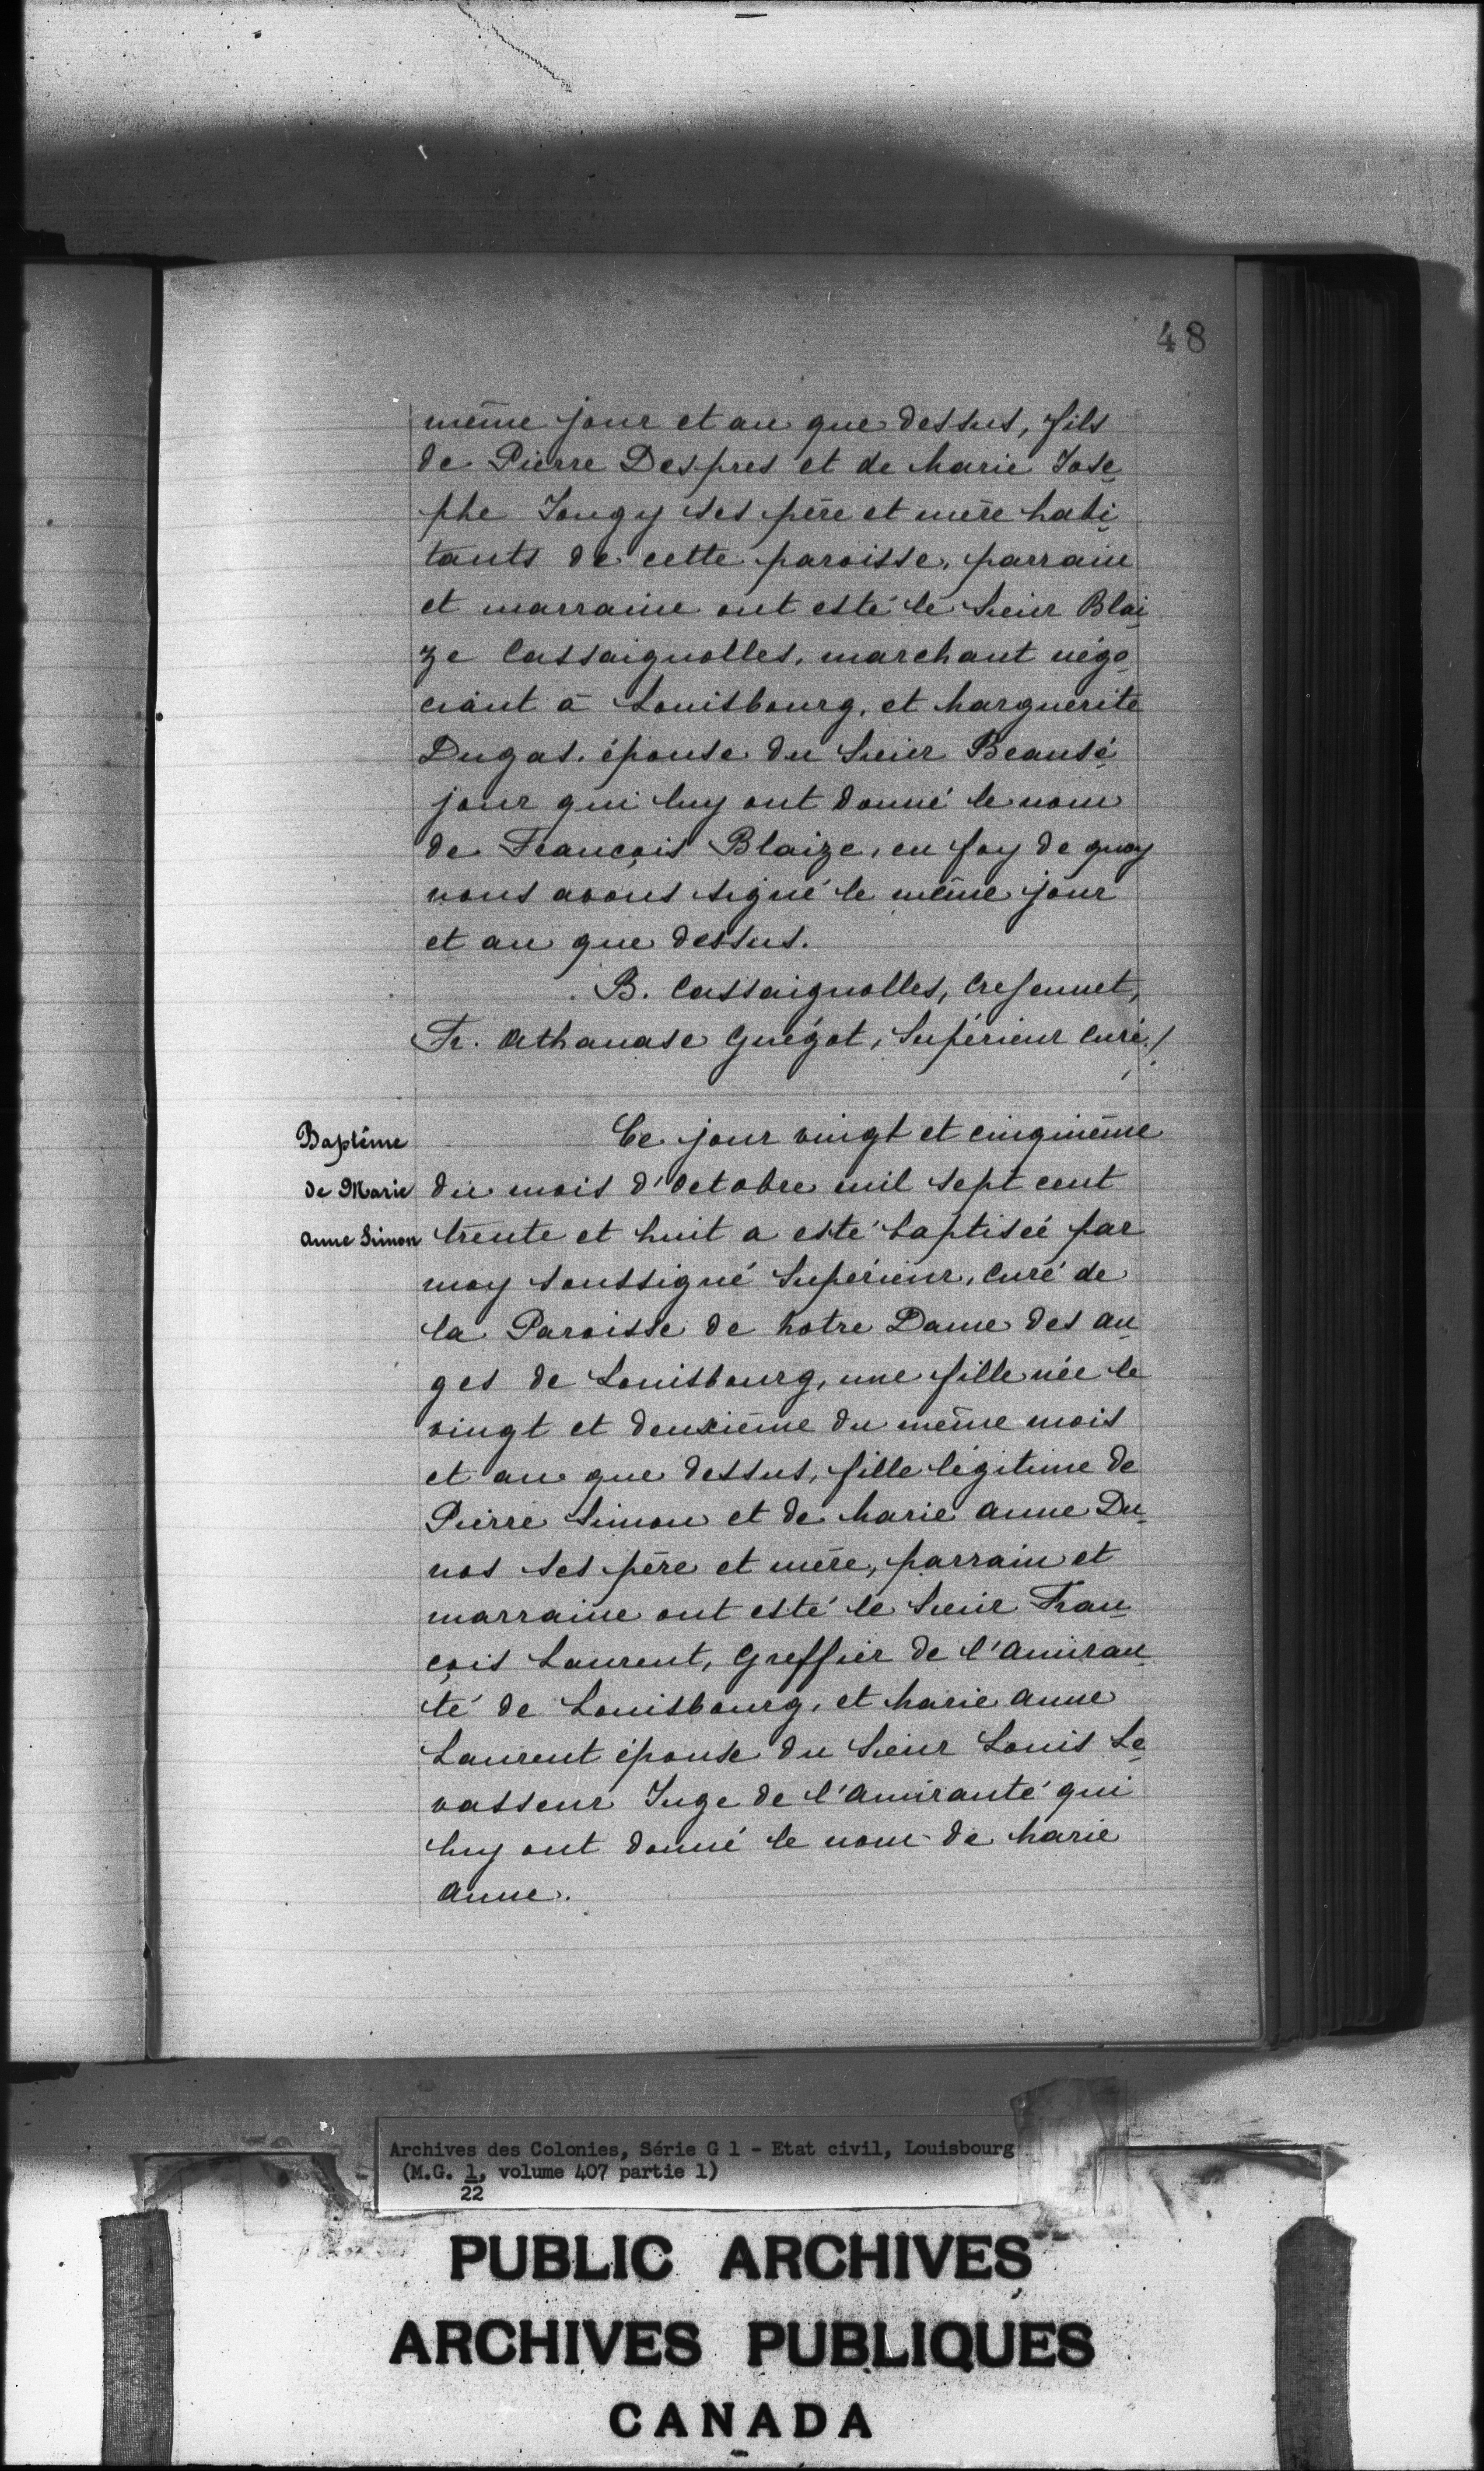 48
même jour et an que dessus, fils
de Pierre Despres et de Marie Jose
phe Jougy ses père et mère habi
tants de cette paroisse, parrain
et marraine ont esté le Sieur Blai
ze Cassaignolles, marchant négo
ciant à Louisbourg, et Marguerite
Dugas, épouse du Sieur Beausé
jour qui luy ont donné le nom
de François Blaize, en foy de quoy
nous avons signé le même jour
et an que dessus.
B. Cassaignolles,
Fr. Athanase Guégot, Supérieur Curé./.
Baptême
de Marie
Anne Simon
Ce jour vingt et cinquième
du mois d'Octobre mil sept cent
trente et huit a esté baptiseé par
moy soussigné Supérieur, Curé de
la Paroisse de Notre Dame des An
ges de Louisbourg, une fille née le
vingt et deuxième du même mois
et an que dessus, fille légitime de
Pierre Simon et de Marie Anne Du
nos ses père et mère, parrain et
marraine ont esté le Sieur Fran
çois Laurent, Greffier de l'Amirau
té de Louisbourg, et Marie Anne
Laurent épouse du Sieur Louis Le
vasseur Juge de l'Amirauté qui
luy ont donné le nom de Marie
Anne.
Archives des Colonies, Série G 1 - Etat civil, Louisbourg
(M.G. 1, volume 407 partie 1)
22
PUBLIC ARCHIVES
ARCHIVES PUBLIQUES
CANADA